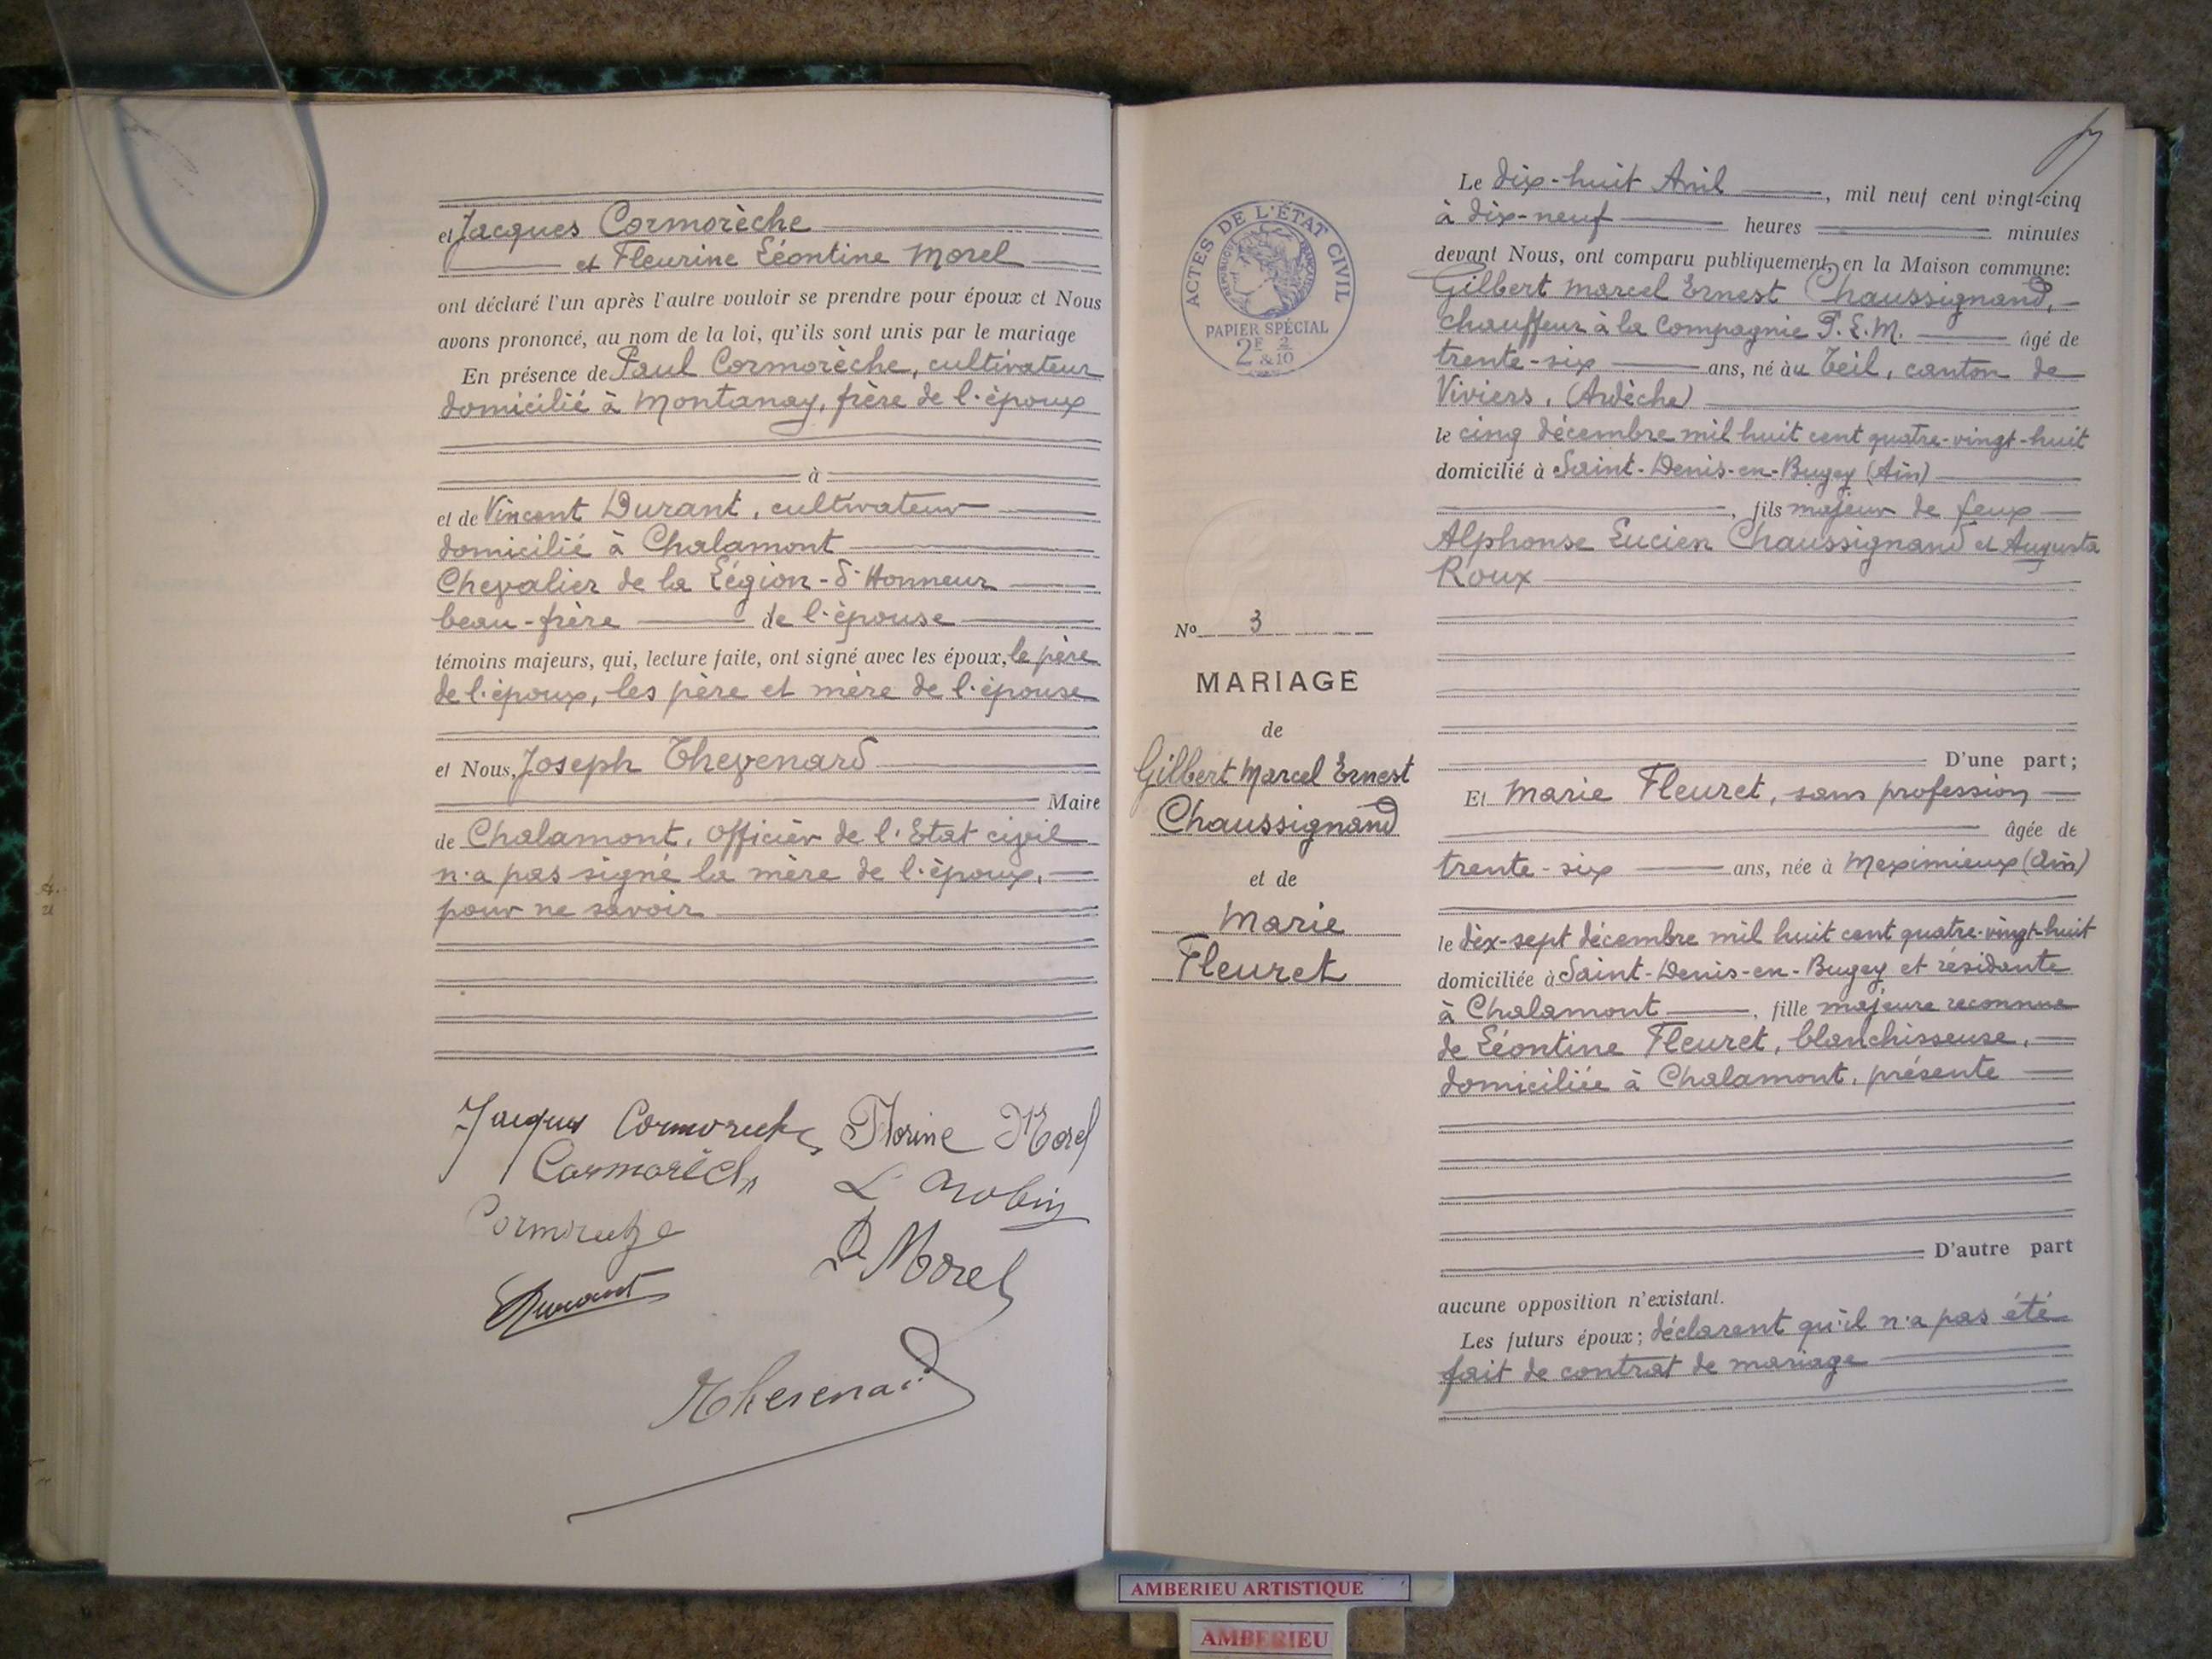 et Jacques Cormorèche
et Fleurine Léontine Morel
ont déclaré l'un après l'autre vouloir se prendre pour époux et Nous
avons prononcé, au nom de la loi, qu'ils sont unis par le mariage
En présence de Paul Cormorèche, cultivateur
domicilié à Montanay, frère de l'époux
à
et de Vincent Durant, cultivateur
domicilié à Chalamont
Chevalier de la Légion-d'Honneur
beau-frère de l'épouse
témoins majeurs, qui, lecture faite, ont signé avec les époux, le père
de l'époux, les père et mère de l'épouse
et Nous, Joseph Thevenard
Maire
de Chalamont, officier de l'Etat civil
n'a pas signé la mère de l'époux,
pour ne savoir
Jacques Cormoreche Florine Morel
Cormorèch
Durant
Morel
Thevenard
ACTES DE L'ÉTAT CIVIL
RÉPUBLIQUE FRANÇAISE
PAPIER SPÉCIAL
2F 2
&10
No 3
MARIAGE
de
Gilbert Marcel Ernest
Chaussignand
et de
Marie
Fleuret
Le dix-huit Avril, mil neuf cent vingt-cinq
à dix-neuf heures minutes
devant Nous, ont comparu publiquement, en la Maison commune:
Gilbert Marcel Ernest Chaussignand,
chauffeur à la Compagnie P.L.M. âgé de
trente-six ans, né àu Teil, canton de
Viviers, (Ardèche)
le cinq décembre mil huit cent quatre-vingt-huit
domicilié à Saint-Denis-en-Bugey (Ain)
, fils majeur de feux
Alphonse Lucien Chaussignand et Augusta
Roux
D'une part;
Et Marie Fleuret, sans profession
âgée de
trente-six ans, née à Meximieux (Ain)
le dix-sept décembre mil huit cent quatre-vingt-huit
domiciliée à Saint-Denis-en-Bugey et résidante
à Chalamont, fille majeure reconnue
de Léontine Fleuret, blanchisseuse,
domiciliée à Chalamont, présente
D'autre part
aucune opposition n'existant.
Les futurs époux; déclarent qu'il n'a pas été
fait de contrat de mariage
AMBERIEU ARTISTIQUE
AMBERIEU